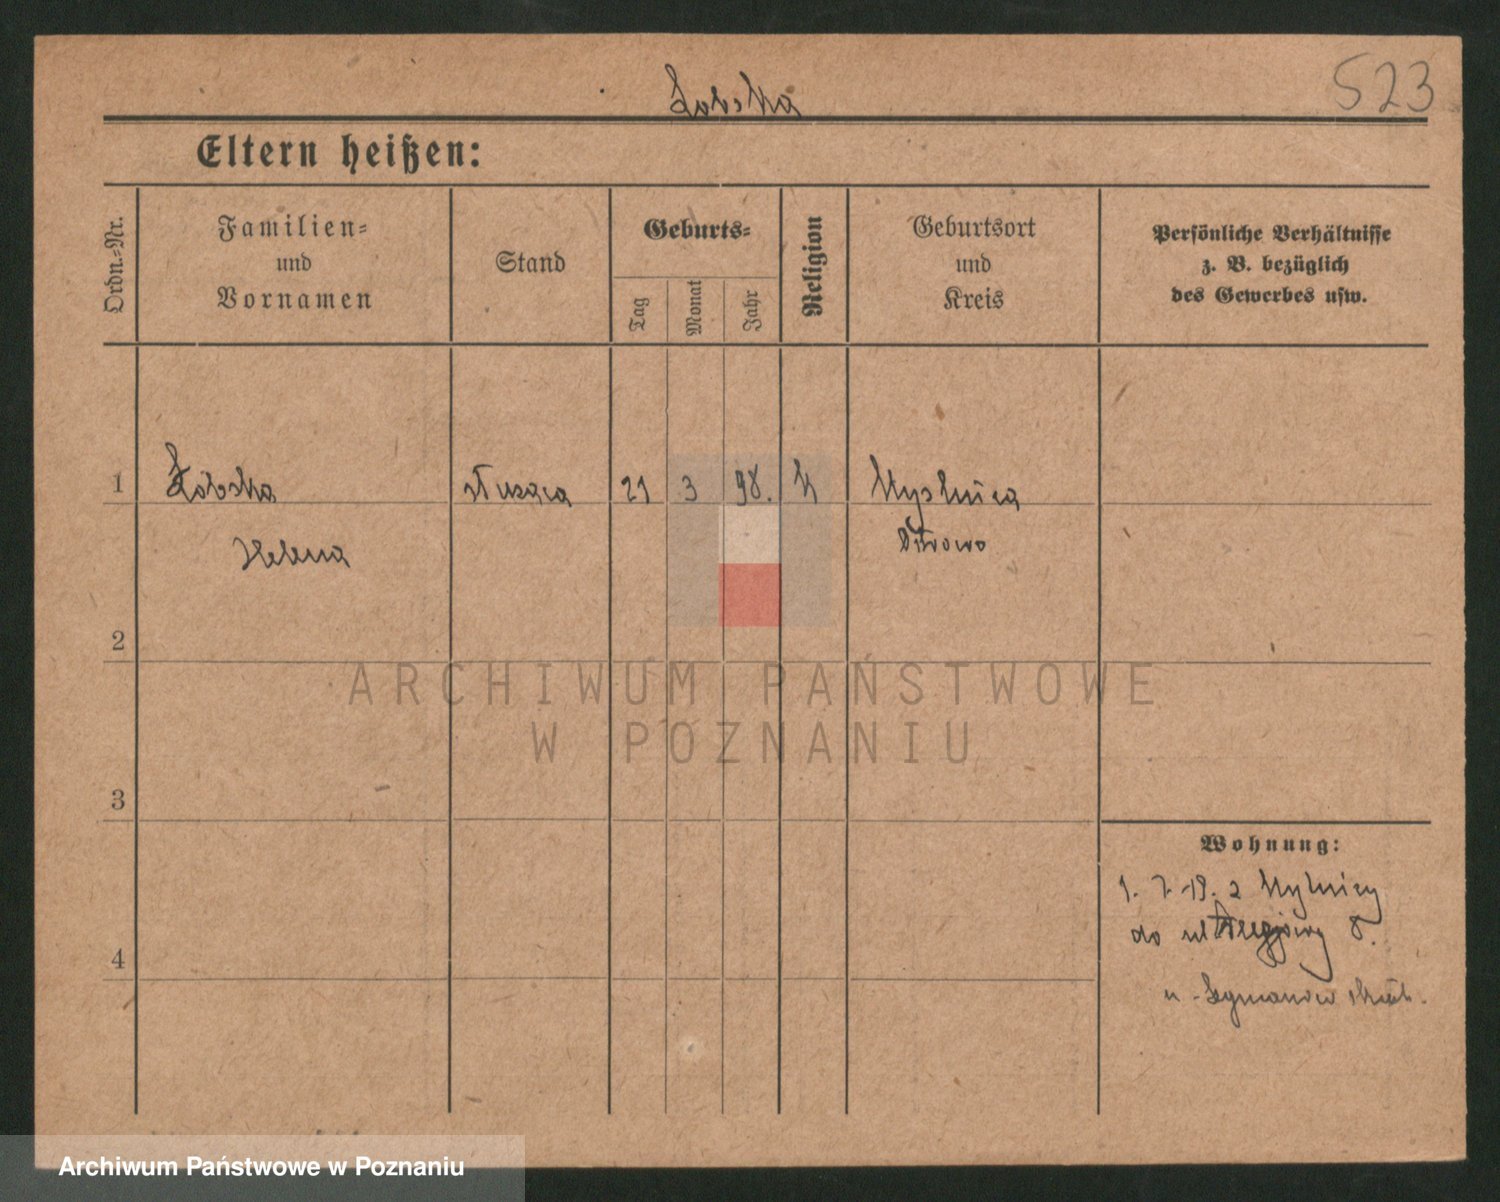 523
Eltern heißen:
Ordn.-Nr.
Familien-
und
Vornamen
Stand
Geburts-
Tag
Monat
Jahr
Religion
Geburtsort
und
Kreis
Persönliche Verhältnisse
z. B. bezüglich
des Gewerbes usw.
1
służąca
21
3
98.
Helena
2
3
4
Wohnung:
1. 7. 19. z
do ul 8.
u
ARCHIWUM PAŃSTWOWE
W POZNANIU
Archiwum Państwowe w Poznaniu